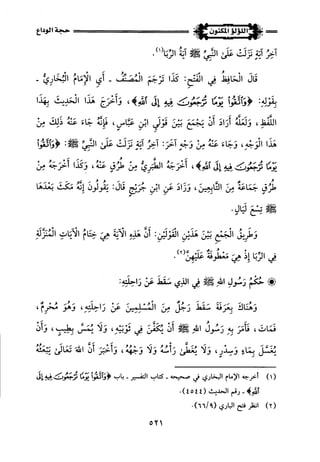 اللؤلؤ المكنون
حجة الوداع
آخِرُ آيَةٍ نَزَلَتْ عَلَى النَّبِيِّ ﷺ آيَةُ الرِّبَا(١).
قَالَ الْحَافِظُ فِي الْفَتْحِ: كَذَا تَرْجَمَ الْمُصَنِّفُ - أَيِ الْإِمَامُ الْبُخَارِيُّ -
بِقَوْلِهِ: ﴿وَاتَّقُوا يَوْمًا تُرْجَعُونَ فِيهِ إِلَى اللَّهِ﴾، وَأَخْرَجَ هَذَا الْحَدِيثَ بِهَذَا
اللَّفْظِ، وَلَعَلَّهُ أَرَادَ أَنْ يَجْمَعَ بَيْنَ قَوْلَيِ ابْنِ عَبَّاسٍ، فَإِنَّهُ جَاءَ عَنْهُ ذَلِكَ مِنْ
هَذَا الْوَجْهِ، وَجَاءَ عَنْهُ مِنْ وَجْهٍ آخَرَ: آخِرُ آيَةٍ نَزَلَتْ عَلَى النَّبِيِّ ﷺ: ﴿وَاتَّقُوا
يَوْمًا تُرْجَعُونَ فِيهِ إِلَى اللَّهِ﴾، أَخْرَجَهُ الطَّبَرِيُّ مِنْ طُرُقٍ عَنْهُ، وَكَذَا أَخْرَجَهُ مِنْ
طُرُقِ جَمَاعَةٍ مِنَ التَّابِعِينَ، وَزَادَ عَنِ ابْنِ جُرَيْجٍ قَالَ: يَقُولُونَ إِنَّهُ مَكَثَ بَعْدَهَا
تِسْعَ لَيَالٍ.
وَطَرِيقُ الْجَمْعِ بَيْنَ هَذَيْنِ الْقَوْلَيْنِ: أَنَّ هَذِهِ الْآيَةَ هِيَ خِتَامُ الْآيَاتِ الْمُنَزَّلَةِ
فِي الرِّبَا إِذْ هِيَ مَعْطُوفَةٌ عَلَيْهِنَّ(٢).
❁ حُكْمُ رَسُولِ اللهِ ﷺ فِي الَّذِي سَقَطَ عَنْ رَاحِلَتِهِ:
وَهُنَاكَ بِعَرَفَةَ سَقَطَ رَجُلٌ مِنَ الْمُسْلِمِينَ عَنْ رَاحِلَتِهِ، وَهُوَ مُحْرِمٌ،
فَمَاتَ، فَأَمَرَ بِهِ رَسُولُ اللهِ ﷺ أَنْ يُكَفَّنَ فِي ثَوْبَيْهِ، وَلَا يُمَسَّ بِطِيبٍ، وَأَنْ
يُغَسَّلَ بِمَاءٍ وَسِدْرٍ، وَلَا يُغَطَّى رَأْسُهُ وَلَا وَجْهُهُ، وَأَخْبَرَ أَنَّ اللهَ تَعَالَى يَبْعَثُهُ
(١) أخرجه الإمام البخاري في صحيحه - كتاب التفسير - باب ﴿وَاتَّقُوا يَوْمًا تُرْجَعُونَ فِيهِ إِلَى
اللَّهِ﴾ - رقم الحديث (٤٥٤٤).
(٢) انظر فتح الباري (٦٦/٩).
٥٢١